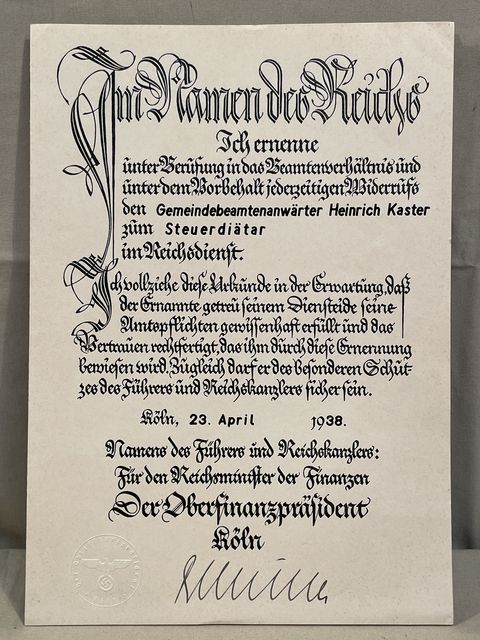 Im Namen des Reichs
Ich ernenne
unter Berufung in das Beamtenverhältnis und
unter dem Vorbehalt jederzeitigen Widerrufs
den Gemeindebeamtenanwärter Heinrich Kaster
zum Steuerdiätar
im Reichsdienst.
Ich vollziehe diese Urkunde in der Erwartung, daß
der Ernannte getreu seinem Diensteide seine
Amtspflichten gewissenhaft erfüllt und das
Vertrauen rechtfertigt, das ihm durch diese Ernennung
bewiesen wird. Zugleich darf er des besonderen Schut-
zes des Führers und Reichskanzlers sicher sein.
Köln, 23. April 1938.
Namens des Führers und Reichskanzlers:
Für den Reichsminister der Finanzen
Der Oberfinanzpräsident
Köln